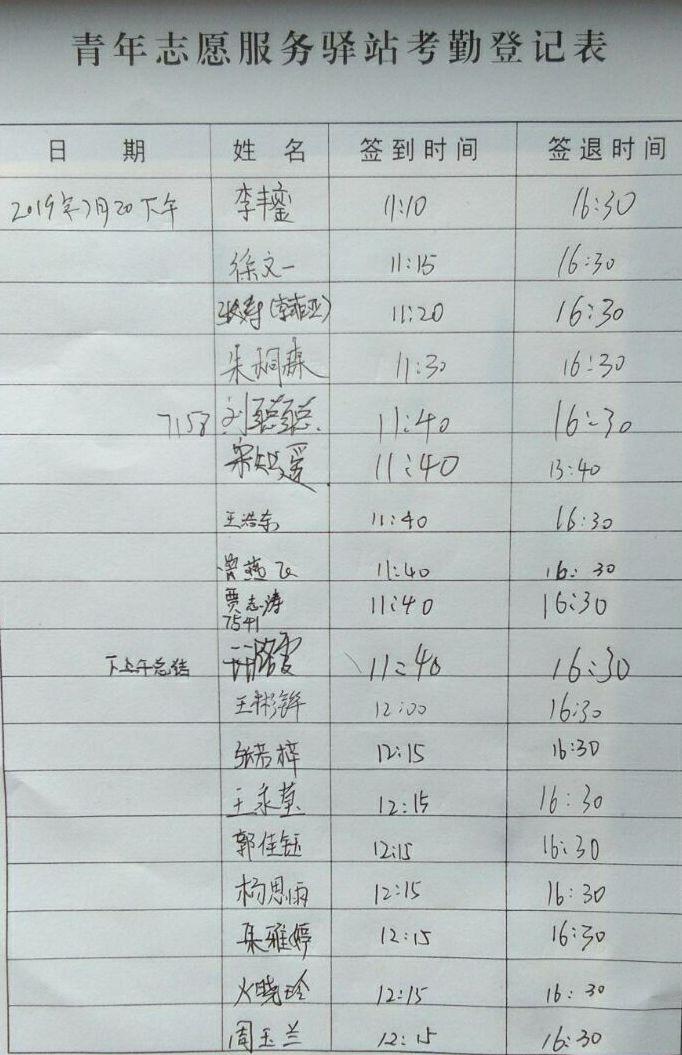 青年志愿服务驿站考勤登记表
日 期 姓 名 签到时间 签退时间
2019年7月20下午 李丰銮 11:10 16:30
徐文一 11:15 16:30
11:20 16:30
朱桐森 11:30 16:30
7158 刘聪聪 11:40 16:30
宋 11:40 13:40
王浩东 11:40 16:30
曾燕飞 11:40 16:30
贾志涛 11:40 16:30
7541
下上午总结 11:40 16:30
王彬 12:00 16:30
张若梓 12:15 16:30
王永莹 12:15 16:30
郭佳钰 12:15 16:30
杨思雨 12:15 16:30
雅婷 12:15 16:30
火晓玲 12:15 16:30
周玉兰 12:15 16:30